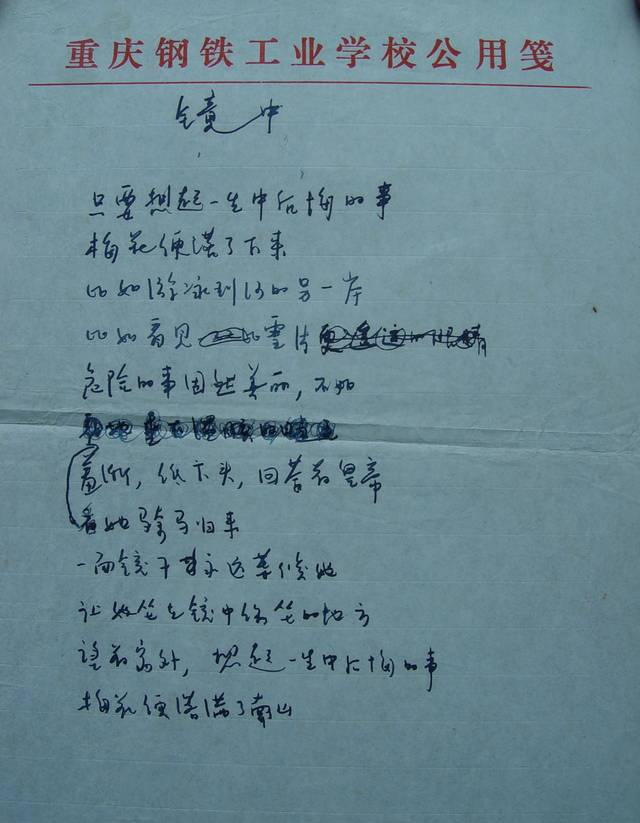 重庆钢铁工业学校公用笺
镜中
只要想起一生中后悔的事
梅花便落了下来
比如游泳到河的另一岸
比如看见比雪片
危险的事固然美丽，不如
羞惭，低下头，回答着皇帝
看她骑马归来
一面镜子永远等候她
让她坐在镜中常坐的地方
望着窗外，想起一生中后悔的事
梅花便落满了南山